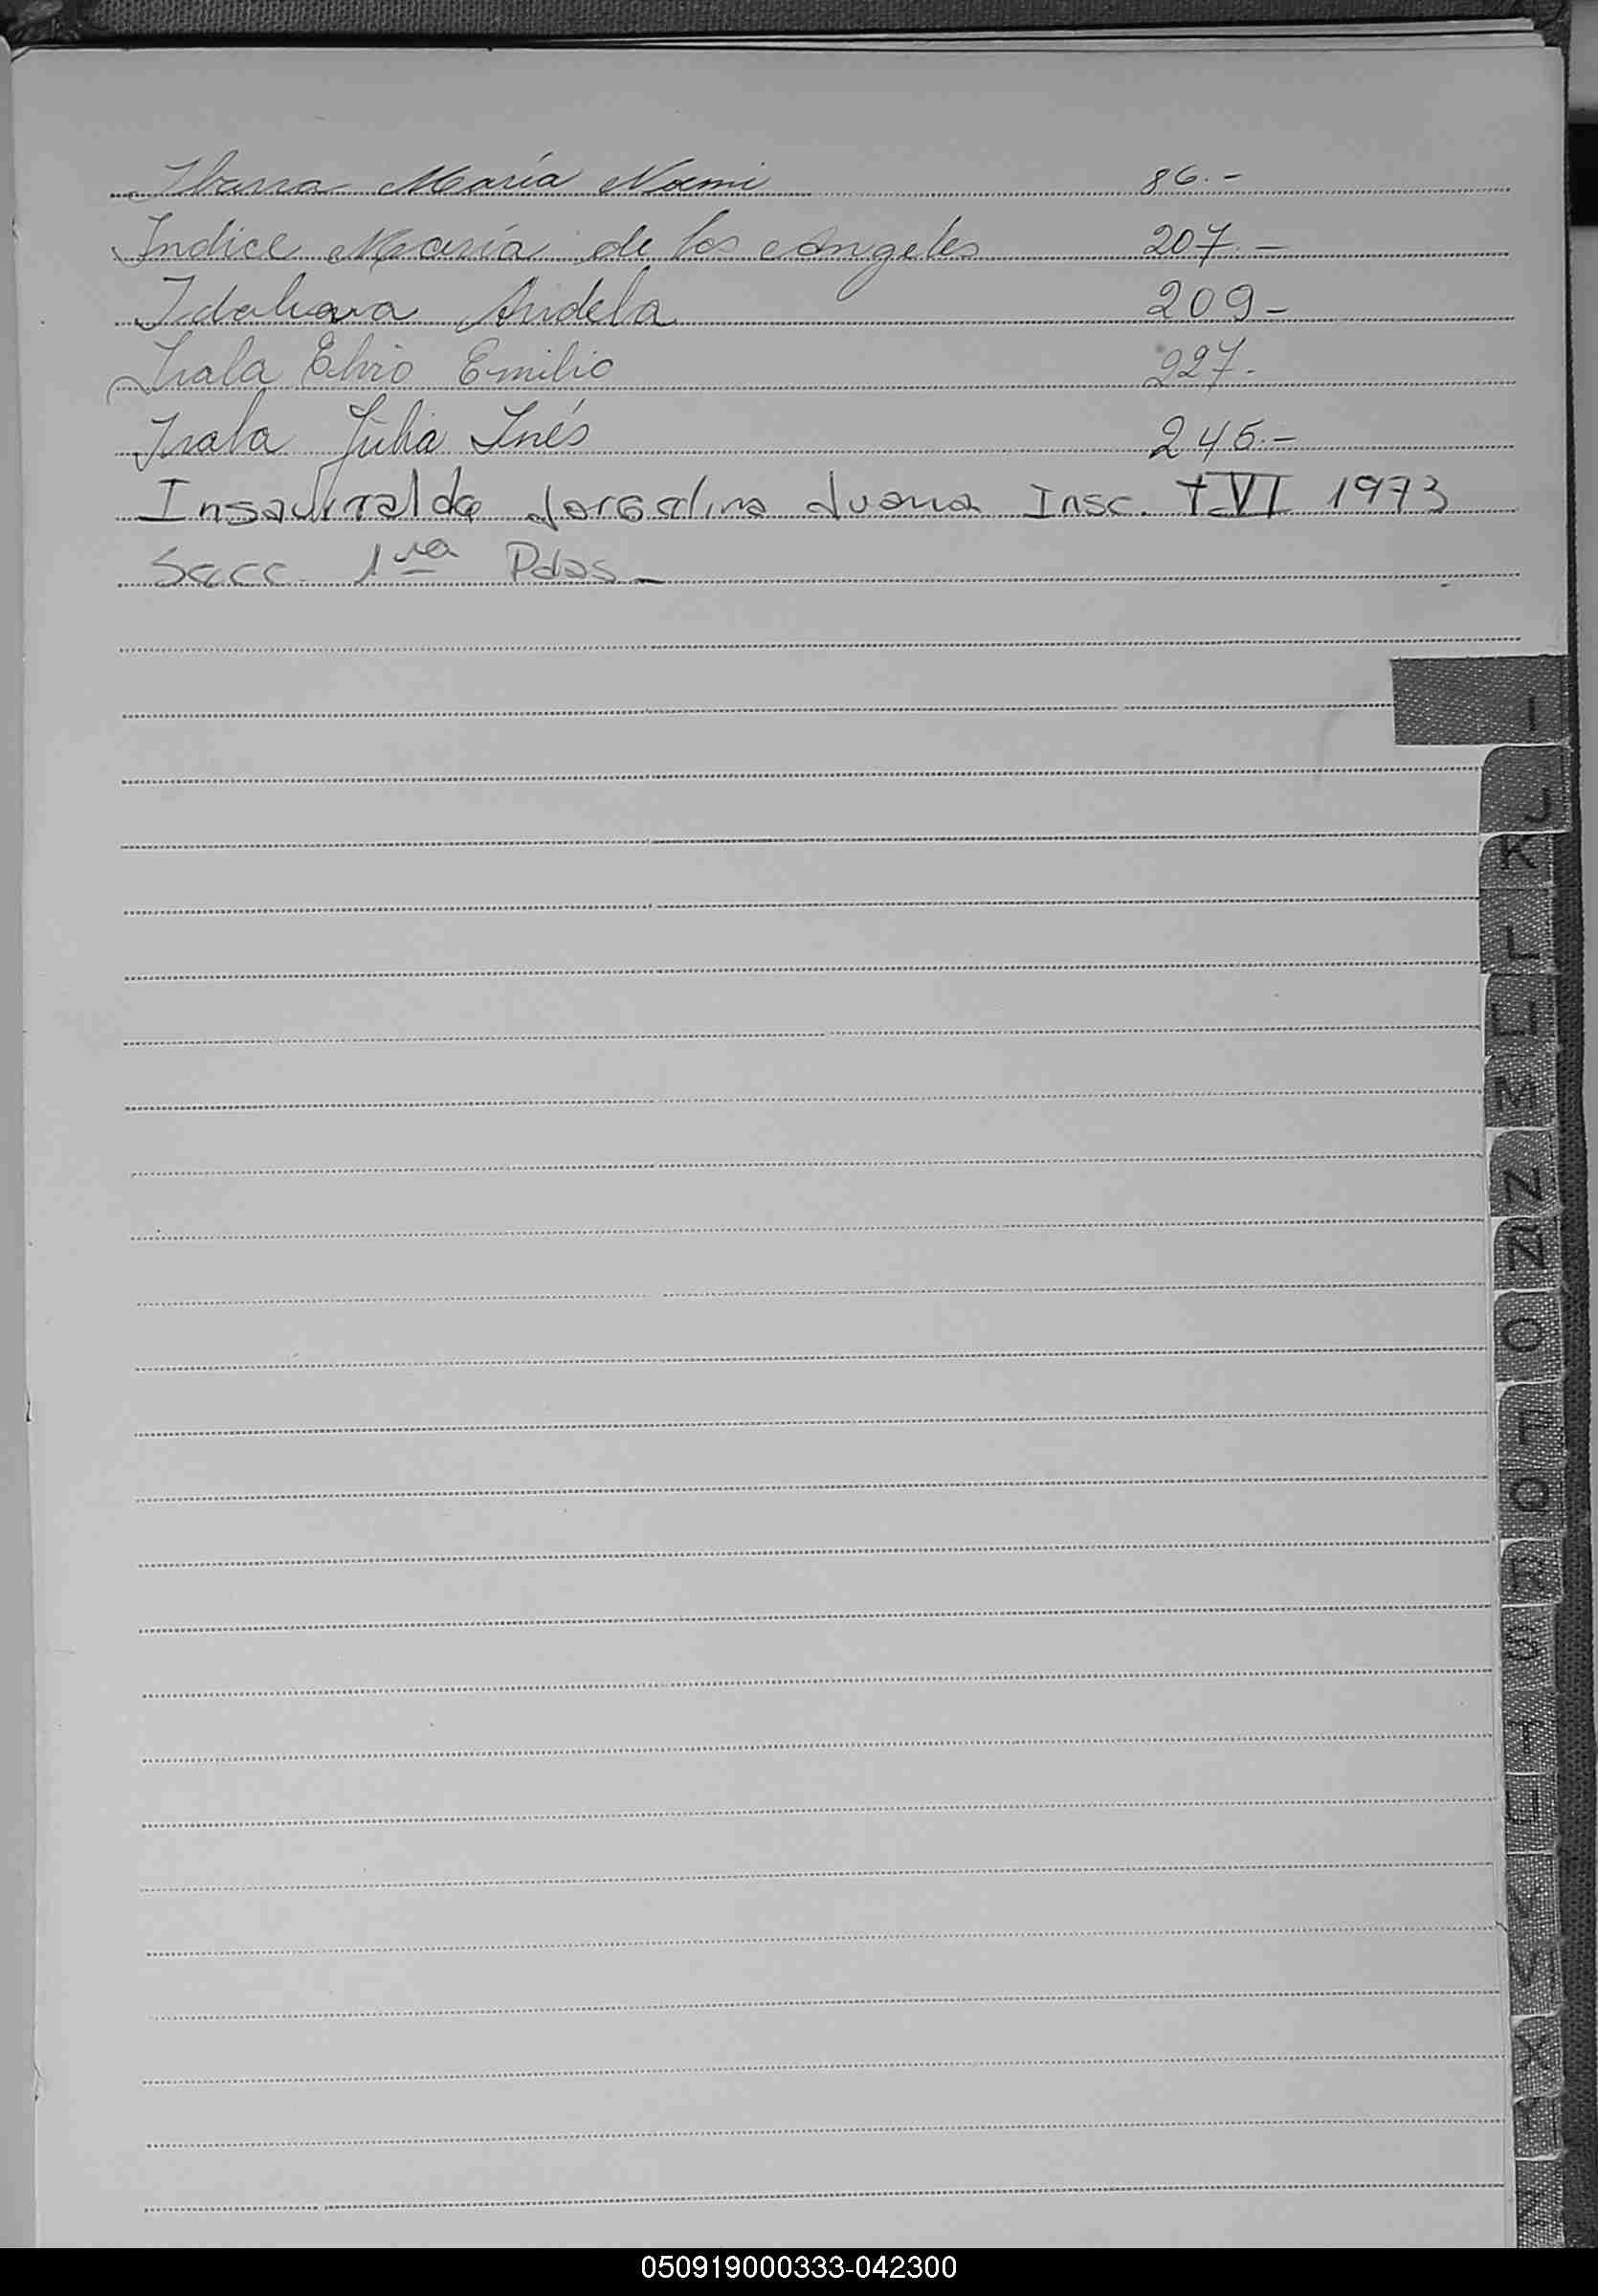 Ibarra María Noemi 86.-
Indice María de los Angeles 207.-
Idalia Andela 209-
Irala Elvio Emilio 227.-
Irala Julia Inés 245.-
Insaurralde Juana Insc. T.VI 1973
Secc. 1ra Pdas-
I
J
K
L
L
M
N
Ñ
O
P
Q
R
S
T
U
V
W
X
Y
Z
050919000333-042300